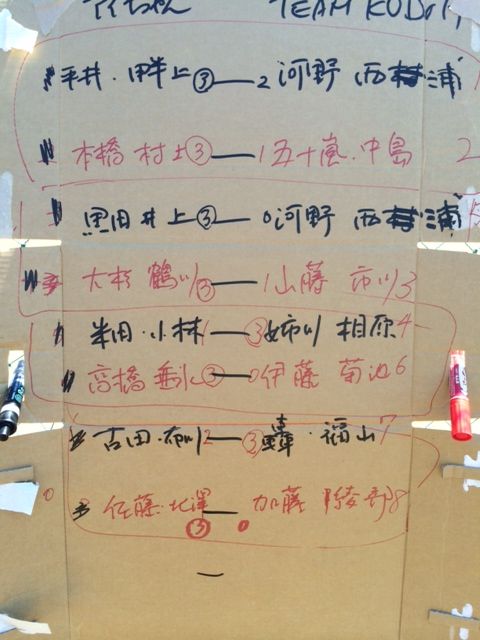 TEAM
平井・ 上③—2 河野 西村 浦
本橋 村上③—1 五十嵐・中島 2
黒田 井上③—0 河野 西村 浦
大杉 鶴川③—1 山藤 市川 3
米田・小林1—③ 相原 4
高橋 ③—0 伊藤 菊池 6
古田・市川2—③轟・福山 7
佐藤・北澤—加藤 綾部 8
③ 0